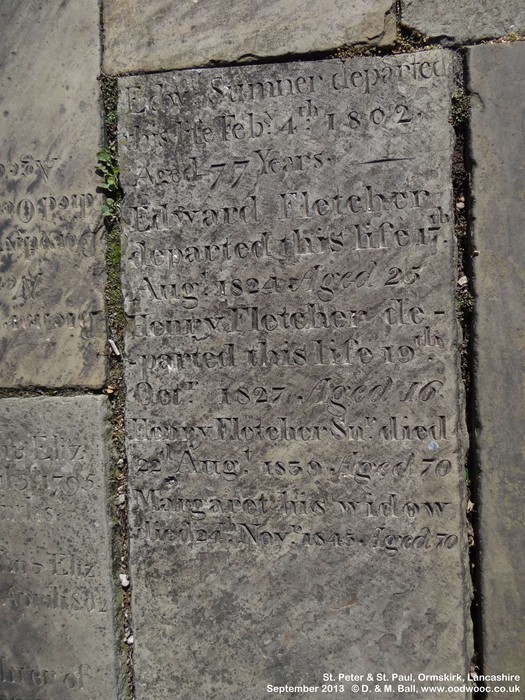 Edwd Sumner departed
this life Feby 4th 1802.
Aged 77 Years.
Edward Fletcher
departed this life 17th
Augt 1824 Aged 25
Henry Fletcher de-
-parted this life 19th
Octr 1827 Aged 16
Henry Fletcher Snr died
22d Augt 1839 Aged 70
Margaret his widow
died 24th Novr 1845. Aged 70
Eliz
1795
Eliz
April 1802
of
St. Peter & St. Paul, Ormskirk, Lancashire
September 2013 © D. & M. Ball, www.oodwooc.co.uk